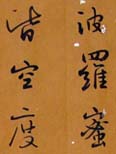 波羅蜜
皆空度